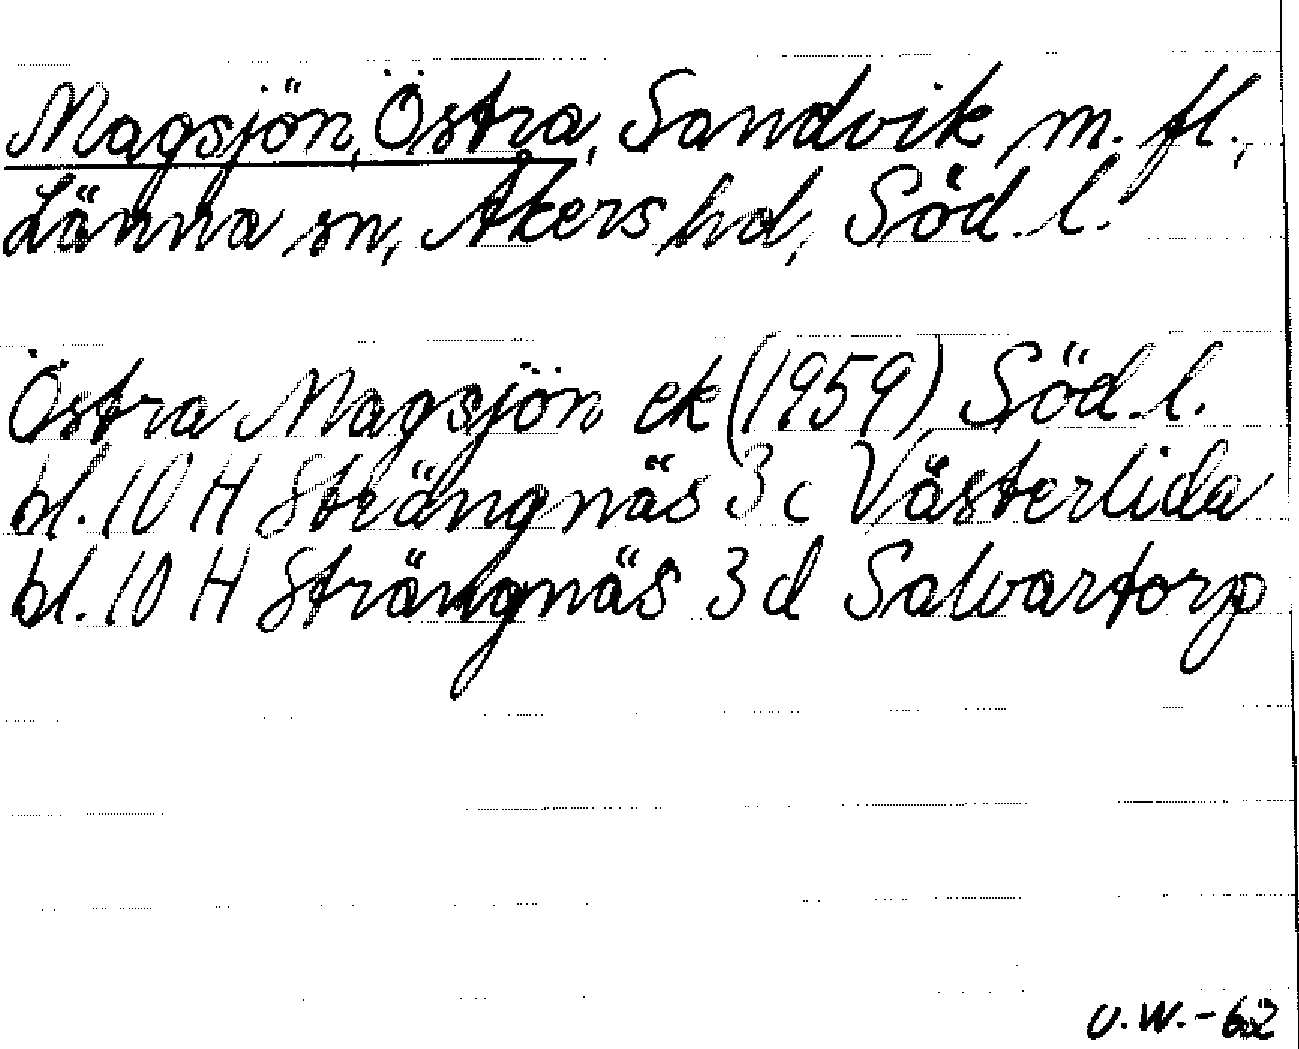 Magsjön, Östra, Sandvik m. fl.,
Länna sn, Åkers hd, Söd. l.
Östra Magsjön ek (1959) Söd. l.
bl. 10 H Strängnäs 3 c Västerlida
bl. 10 H Strängnäs 3 d Salvartorp
U.W.-62